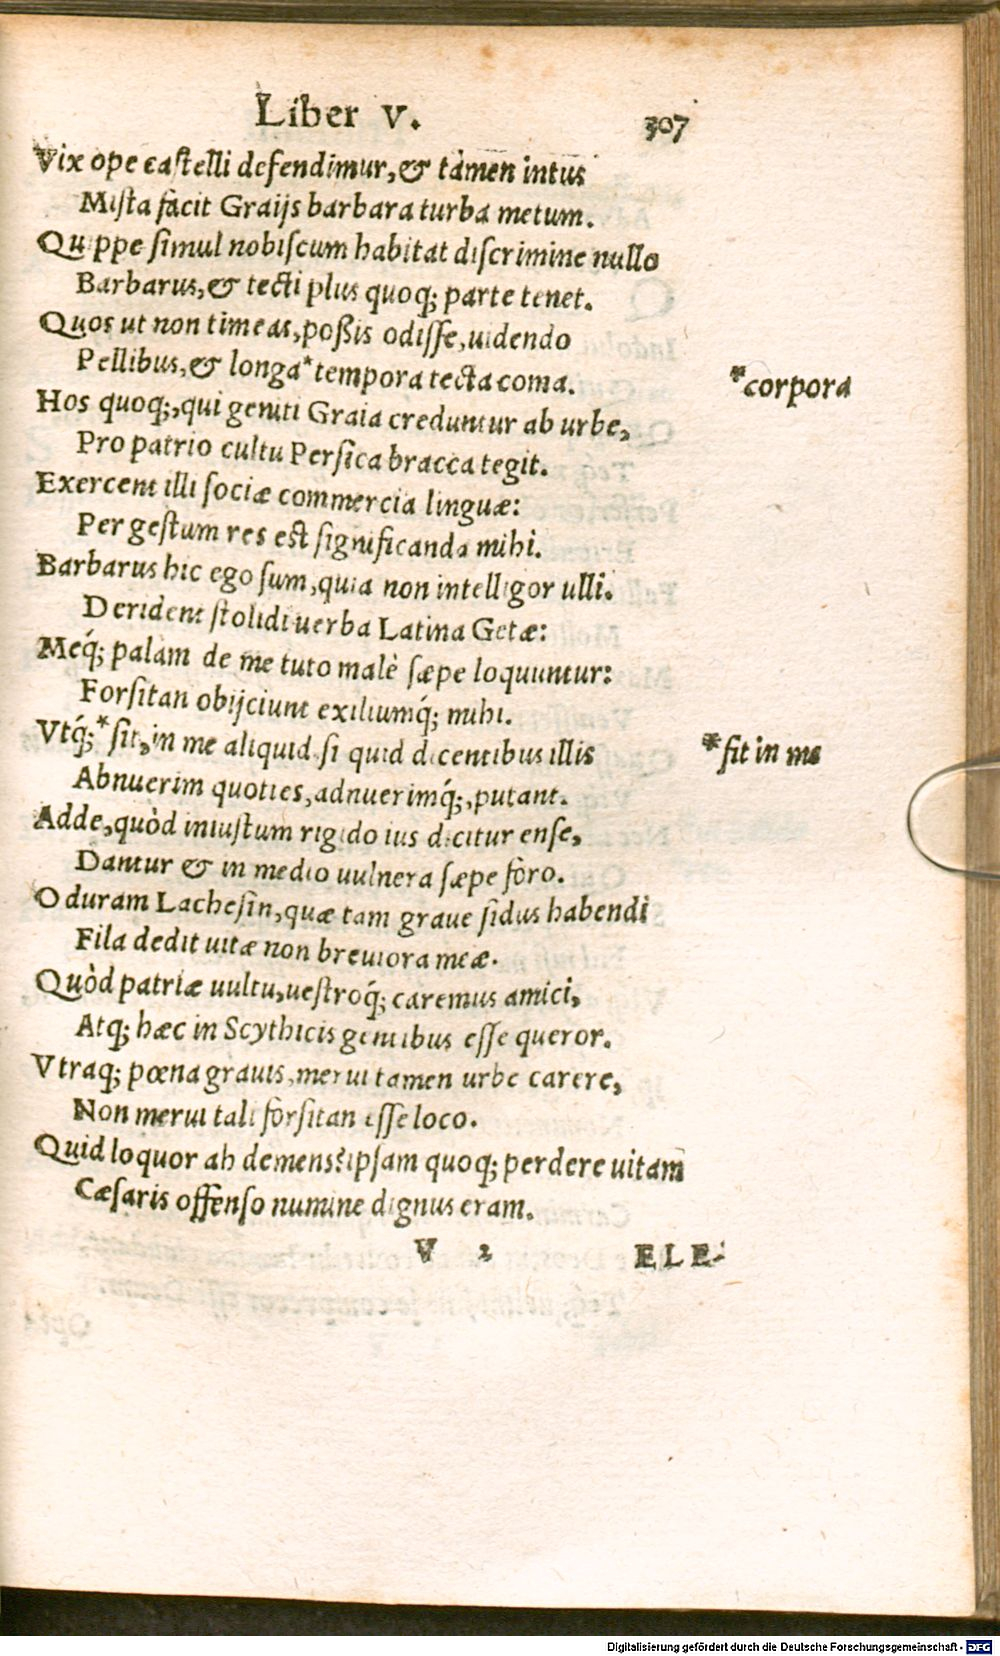 Liber V.
307
Vix ope castelli defendimur, & tamen intus
Mista facit Graijs barbara turba metum.
Quippe simul nobiscum habitat discrimine nullo
Barbarus, & tecti plus quoq; parte tenet.
Quos ut non timeas, poßis odisse, uidendo
Pellibus, & longa *tempora tecta coma.
*corpora
Hos quoq;, qui geniti Graia creduntur ab urbe,
Pro patrio cultu Persica bracca tegit.
Exercent illi sociæ commercia linguæ:
Per gestum res est significanda mihi.
Barbarus hic ego sum, quia non intelligor ulli.
Derident stolidi uerba Latina Getæ:
Meq́; palam de me tuto malè sæpe loquuntur:
Forsitan obijciunt exiliumq́; mihi.
Vtq́; *sit, in me aliquid si quid dicentibus illis
*fit in me
Abnuerim quoties, adnuerimq́;, putant.
Adde, quòd iniustum rigido ius dicitur ense,
Dantur & in medio uulnera sæpe foro.
O duram Lachesin, quæ tam graue sidus habendi
Fila dedit uitæ non breuiora meæ.
Quòd patriæ uultu, uestroq́; caremus amici,
Atq; hæc in Scythicis gentibus esse queror.
Vtraq; pœna grauis, merui tamen urbe carere,
Non merui tali forsitan esse loco.
Quid loquor ah demens? ipsam quoq; perdere uitam
Cæsaris offenso numine dignus eram.
V 2
ELE-
Digitalisierung gefördert durch die Deutsche Forschungsgemeinschaft - DFG